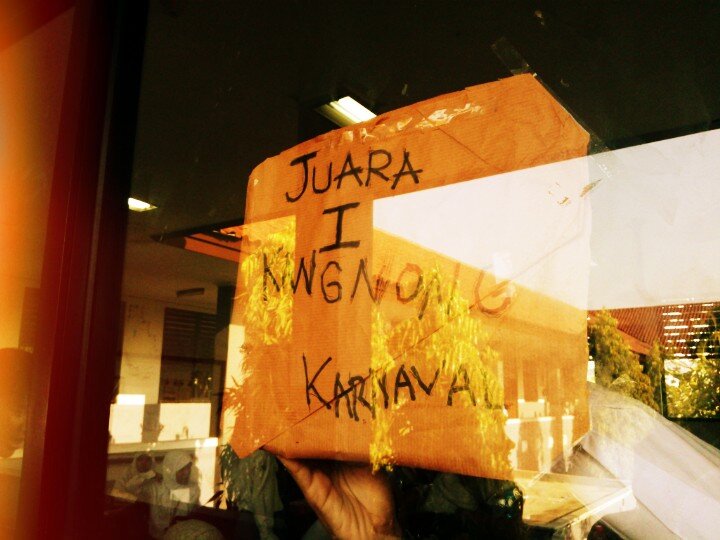 JUARA
I
KANGNONG
KARNAVAL